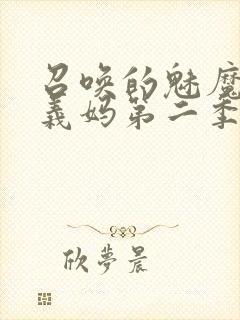 召唤的魅魔
义妈第二季
欣梦晨